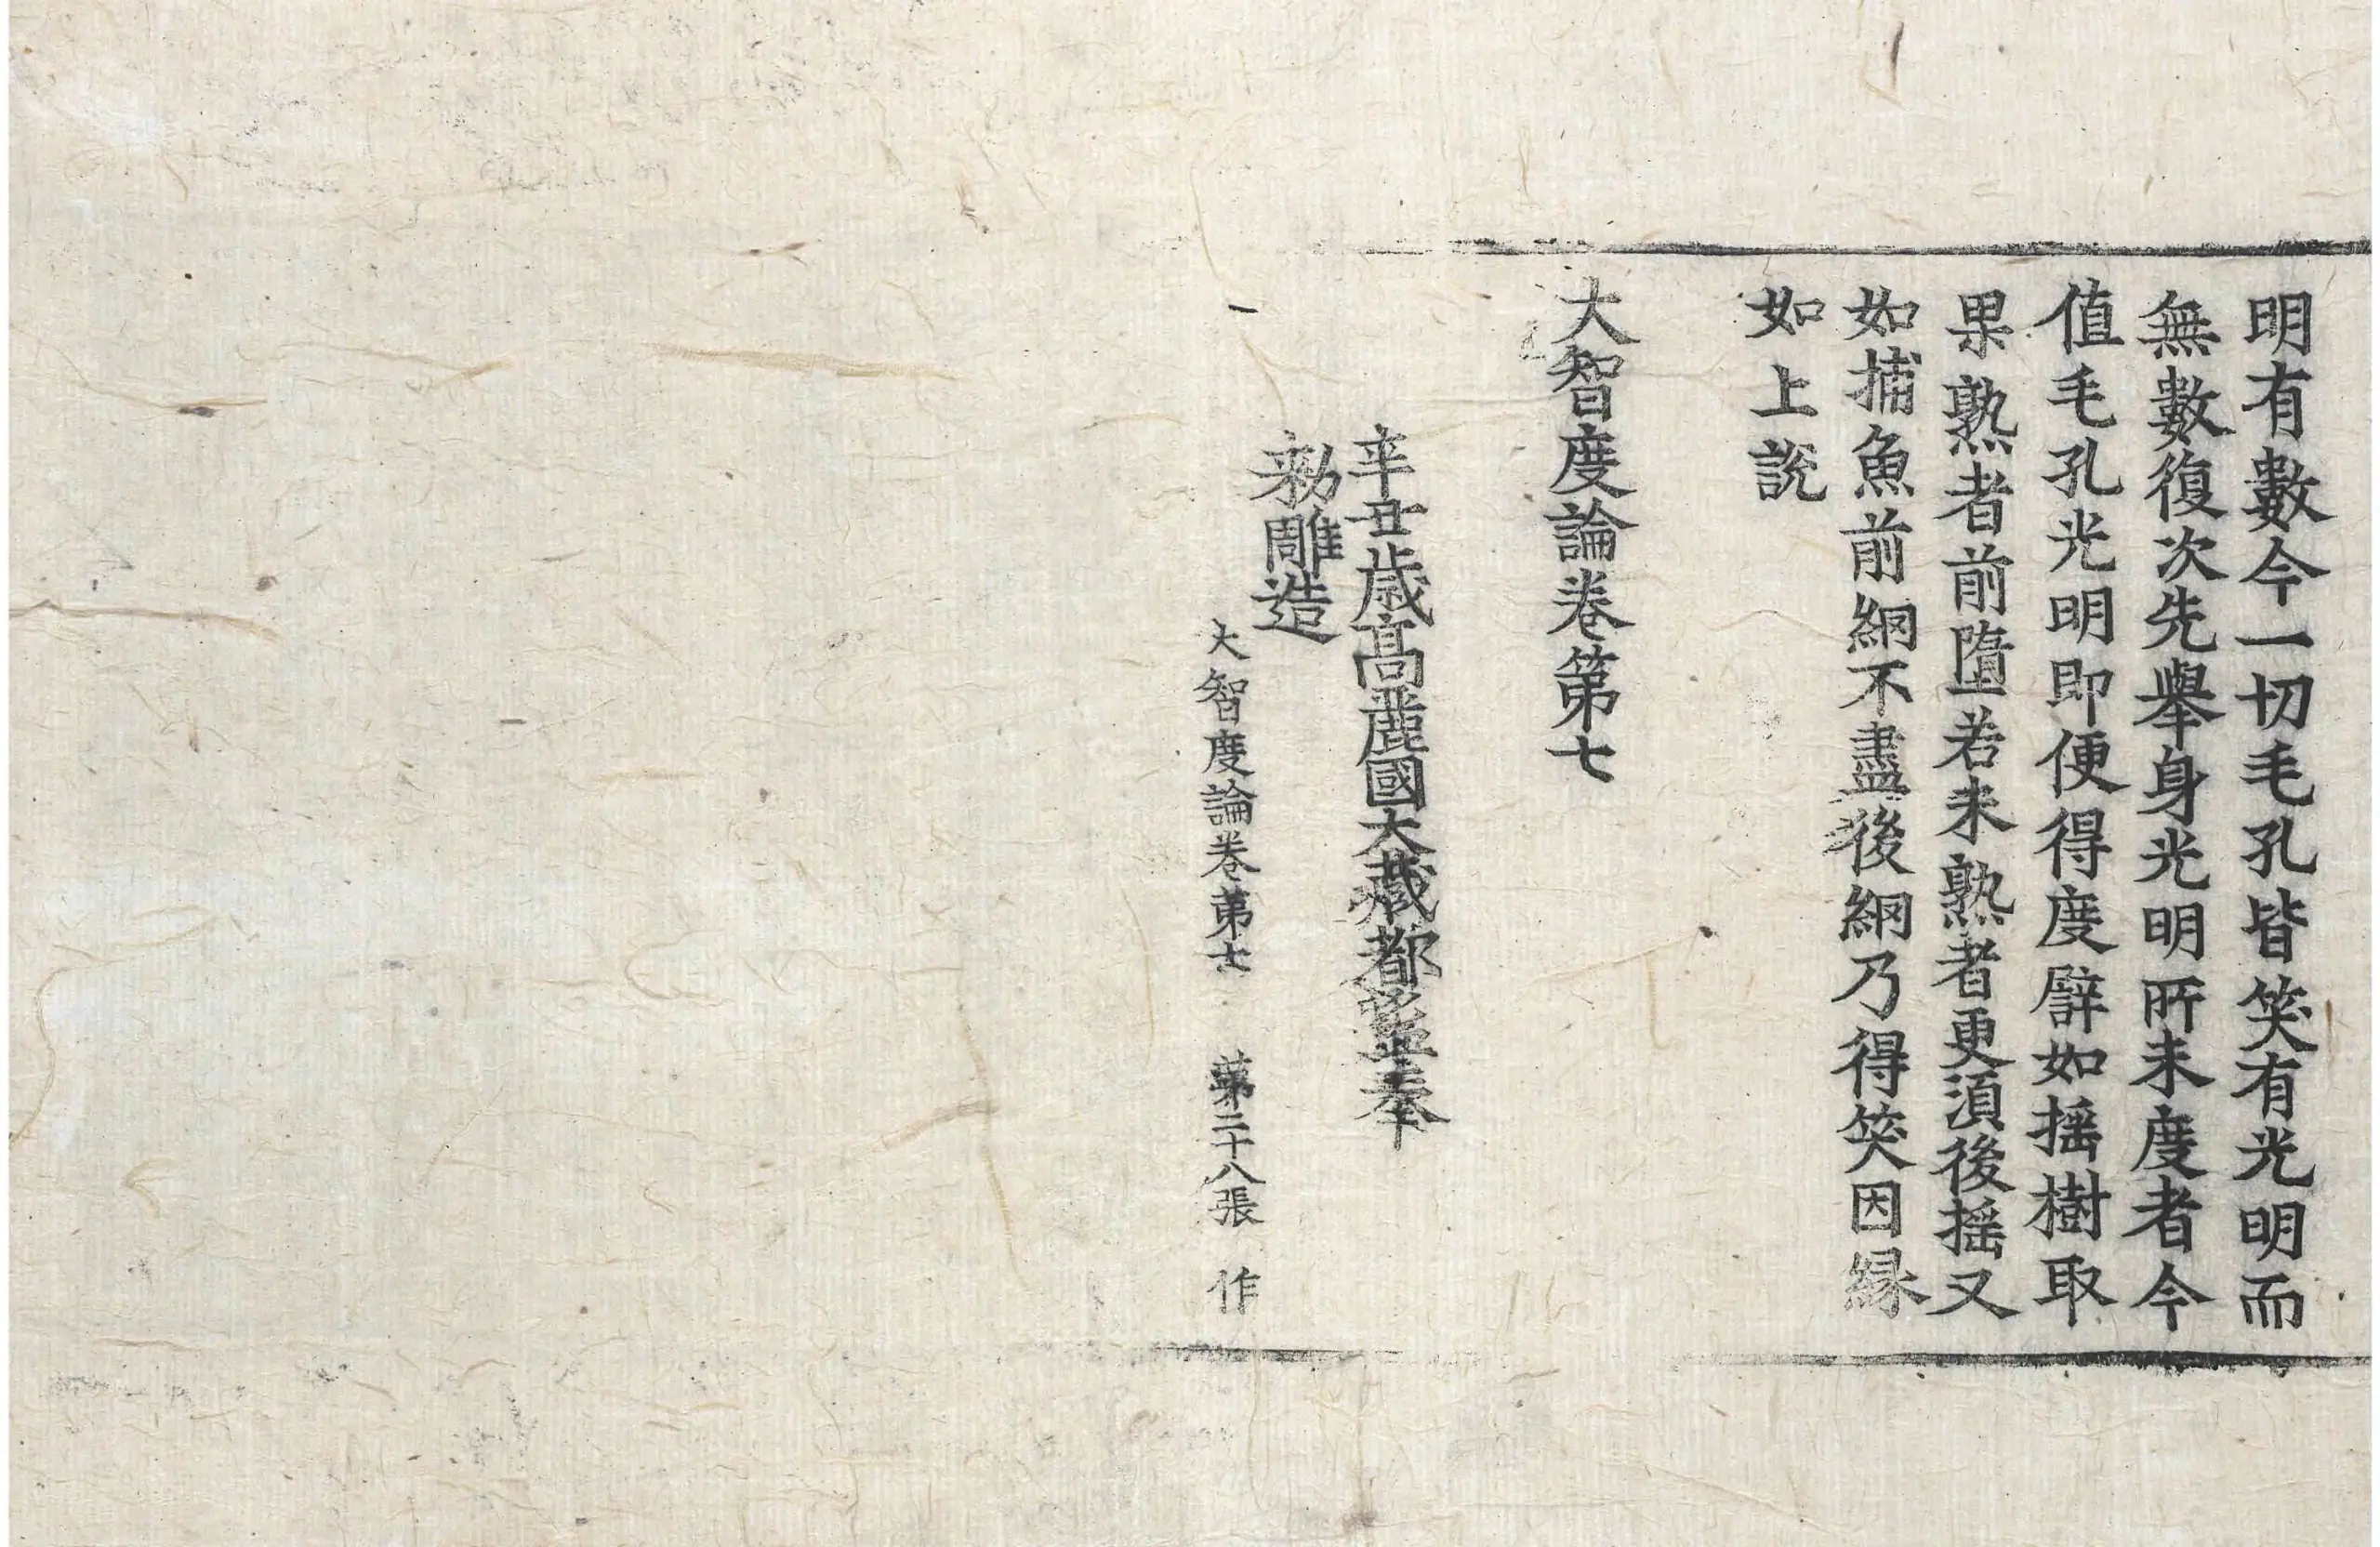 明有數今一切毛孔皆笑有光明而
無數復次先舉身光明所未度者今
值毛孔光明即便得度譬如搖樹取
果熟者前墮若未熟者更須後搖又
如捕魚前網不盡後網乃得笑因緣
如上說
大智度論卷第七
辛丑歲高麗國大藏都監奉
勑雕造
大智度論卷第七 第二十八張 作